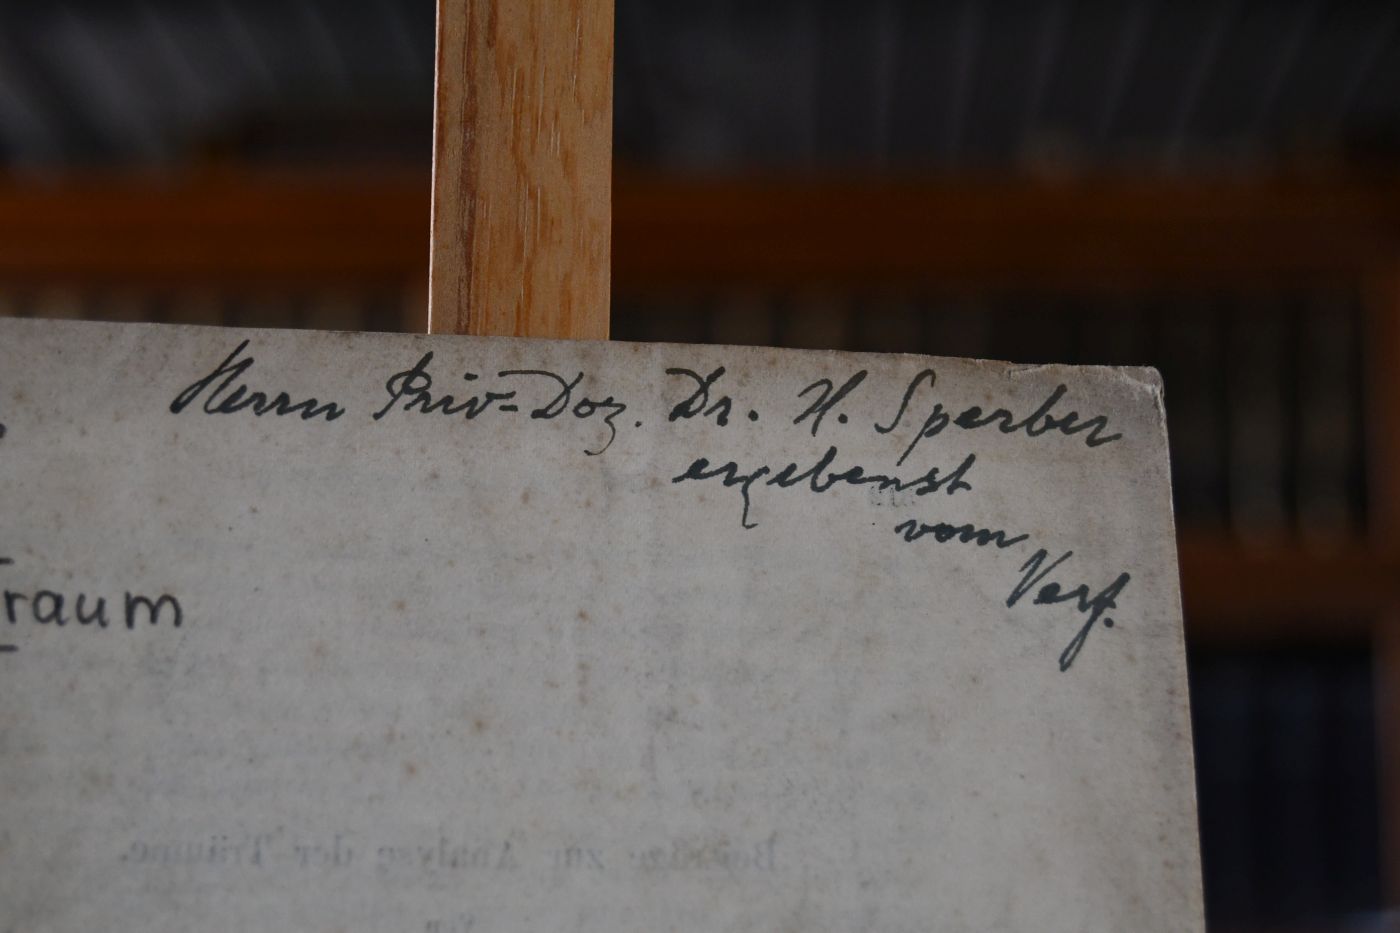 Herrn Priv-Doz. Dr. H. Sperber
ergebenst
vom
Verf.
Traum
Beiträge zur Analyse der Träume.
Von